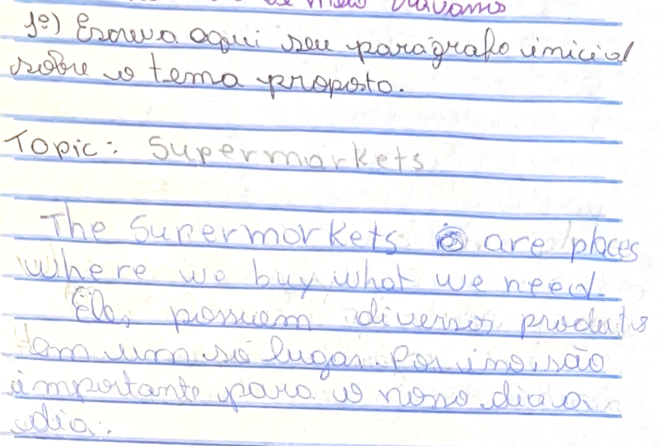 de meio bravamo
1º) Escreva aqui seu parágrafo inicial
sobre o tema proposto.
Topic: Supermarkets
The Supermarkets are places
where we buy what we need.
Eles possuem diversos produtos
em um só lugar. Por isso, são
importante para o nosso dia a
dia.